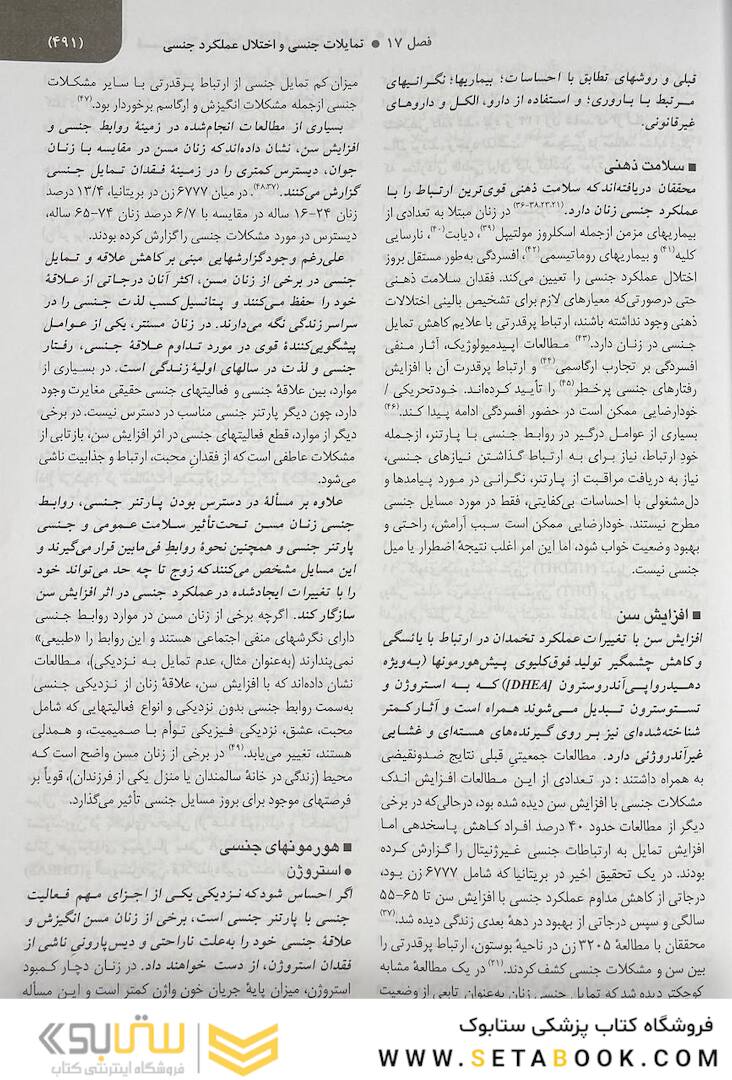 فصل ۱۷ • تمایلات جنسی و اختلال عملکرد جنسی
(۴۹۱)
قبلی و روشهای تطابق با احساسات؛ بیماریها؛ نگرانیهای
مرتبط با باروری؛ و استفاده از دارو، الکل و داروهای
غیرقانونی.
■ سلامت ذهنی
محققان دریافته‌اند که سلامت ذهنی قوی‌ترین ارتباط را با
عملکرد جنسی زنان دارد.(۳۶-۳۸،۲۳،۲۱) در زنان مبتلا به تعدادی از
بیماریهای مزمن ازجمله اسکلروز مولتیپل(۳۹)، دیابت(۴۰)، نارسایی
کلیه(۴۱) و بیماریهای روماتیسمی(۴۲)، افسردگی به‌طور مستقل بروز
اختلال عملکرد جنسی را تعیین می‌کند. فقدان سلامت ذهنی
حتی درصورتی‌که معیارهای لازم برای تشخیص بالینی اختلالات
ذهنی وجود نداشته باشند، ارتباط پرقدرتی با علایم کاهش تمایل
جنسی در زنان دارد.(۴۳) مطالعات اپیدمیولوژیک، آثار منفی
افسردگی بر تجارب ارگاسمی(۴۴) و ارتباط پرقدرت آن با افزایش
رفتارهای جنسی پرخطر(۴۵) را تأیید کرده‌اند. خودتحریکی /
خودارضایی ممکن است در حضور افسردگی ادامه پیدا کند.(۴۶)
بسیاری از عوامل درگیر در روابط جنسی با پارتنر، ازجمله
خودِ ارتباط، نیاز برای به ارتباط گذاشتن نیازهای جنسی،
نیاز به دریافت مراقبت از پارتنر، نگرانی در مورد پیامدها و
دل‌مشغولی با احساسات بی‌کفایتی، فقط در مورد مسایل جنسی
مطرح نیستند. خودارضایی ممکن است سبب آرامش، راحتی و
بهبود وضعیت خواب شود، اما این امر اغلب نتیجهٔ اضطرار یا میل
جنسی نیست.
■ افزایش سن
افزایش سن با تغییرات عملکرد تخمدان در ارتباط با یائسگی
و کاهش چشمگیر تولید فوق‌کلیوی پیش‌هورمونها (به‌ویژه
دهیدرواپی‌آندروسترون [DHEA]) که به استروژن و
تستوسترون تبدیل می‌شوند همراه است و آثار کمتر
شناخته‌شده‌ای نیز بر روی گیرنده‌های هسته‌ای و غشایی
غیرآندروژنی دارد. مطالعات جمعیتیِ قبلی نتایج ضدونقیضی
به همراه داشتند : در تعدادی از این مطالعات افزایش اندک
مشکلات جنسی با افزایش سن دیده شده بود، درحالی‌که در برخی
دیگر از مطالعات حدود ۴۰ درصد افراد کاهش پاسخدهی اما
افزایش تمایل به ارتباطات جنسی غیرژنیتال را گزارش کرده
بودند. در یک تحقیق اخیر در بریتانیا که شامل ۶۷۷۷ زن بود،
درجاتی از کاهش مداوم عملکرد جنسی با افزایش سن تا ۶۵–۵۵
سالگی و سپس درجاتی از بهبود در دههٔ بعدی زندگی دیده شد.(۳۷)
محققان با مطالعهٔ ۳۲۰۵ زن در ناحیهٔ بوستون، ارتباط پرقدرتی را
بین سن و مشکلات جنسی کشف کردند.(۲۱) در یک مطالعهٔ مشابه
کوچکتر دیده شد که تمایل جنسی زنان به‌عنوان تابعی از وضعیت
میزان کم تمایل جنسی از ارتباط پرقدرتی با سایر مشکلات
جنسی ازجمله مشکلات انگیزش و ارگاسم برخوردار بود.(۴۷)
بسیاری از مطالعات انجام‌شده در زمینهٔ روابط جنسی و
افزایش سن، نشان داده‌اند که زنان مسن در مقایسه با زنان
جوان، دیسترس کمتری را در زمینهٔ فقدان تمایل جنسی
گزارش می‌کنند.(۴۸،۳۷). در میان ۶۷۷۷ زن در بریتانیا، ۱۳/۴ درصد
زنان ۲۴–۱۶ ساله در مقایسه با ۶/۷ درصد زنان ۷۴–۶۵ ساله،
دیسترس در مورد مشکلات جنسی را گزارش کرده بودند.
علی‌رغم وجود گزارشهایی مبنی بر کاهش علاقه و تمایل
جنسی در برخی از زنان مسن، اکثر آنان درجاتی از علاقهٔ
خود را حفظ می‌کنند و پتانسیل کسب لذت جنسی را در
سراسر زندگی نگه می‌دارند. در زنان مسنتر، یکی از عوامل
پیشگویی‌کنندهٔ قوی در مورد تداوم علاقهٔ جنسی، رفتار
جنسی و لذت در سالهای اولیهٔ زندگی است. در بسیاری از
موارد، بین علاقهٔ جنسی و فعالیتهای جنسی حقیقی مغایرت وجود
دارد، چون دیگر پارتنر جنسی مناسب در دسترس نیست. در برخی
دیگر از موارد، قطع فعالیتهای جنسی در اثر افزایش سن، بازتابی از
مشکلات عاطفی است که از فقدانِ محبت، ارتباط و جذابیت ناشی
می‌شود.
علاوه بر مسألهٔ در دسترس بودن پارتنر جنسی، روابط
جنسی زنان مسن تحت‌تأثیر سلامت عمومی و جنسی
پارتنر جنسی و همچنین نحوهٔ روابطِ فی‌مابین قرار می‌گیرند و
این مسایل مشخص می‌کنند که زوج تا چه حد می‌تواند خود
را با تغییرات ایجادشده در عملکرد جنسی در اثر افزایش سن
سازگار کند. اگرچه برخی از زنان مسن در موارد روابط جنسی
دارای نگرشهای منفی اجتماعی هستند و این روابط را «طبیعی»
نمی‌پندارند (به‌عنوان مثال، عدم تمایل به نزدیکی)، مطالعات
نشان داده‌اند که با افزایش سن، علاقهٔ زنان از نزدیکی جنسی
به‌سمت روابط جنسی بدون نزدیکی و انواع فعالیتهایی که شامل
محبت، عشق، نزدیکی فیزیکی توأم با صمیمیت، و همدلی
هستند، تغییر می‌یابد.(۴۹) در برخی از زنان مسن واضح است که
محیط (زندگی در خانهٔ سالمندان یا منزل یکی از فرزندان)، قویاً بر
فرصتهای موجود برای بروز مسایل جنسی تأثیر می‌گذارد.
■ هورمونهای جنسی
● استروژن
اگر احساس شود که نزدیکی یکی از اجزای مهم فعالیت
جنسی با پارتنر جنسی است، برخی از زنان مسن انگیزش و
علاقهٔ جنسی خود را به‌علت ناراحتی و دیس‌پارونیِ ناشی از
فقدان استروژن، از دست خواهند داد. در زنان دچار کمبود
استروژن، میزان پایهٔ جریان خون واژن کمتر است و این مسأله
فروشگاه کتاب پزشکی ستابوک
WWW.SETABOOK.COM
ستابوک
فروشگاه اینترنتی کتاب